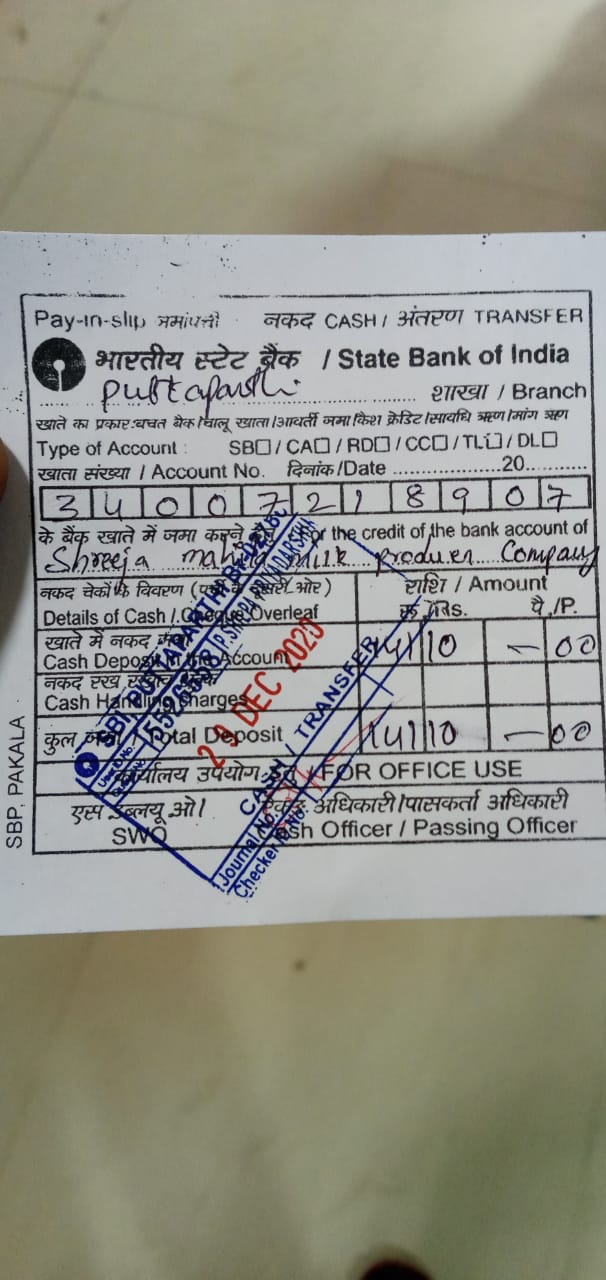 Pay-in-slip जमापर्ची नकद CASH / अंतरण TRANSFER
भारतीय स्टेट बैंक / State Bank of India
Puttaparthi शाखा / Branch
खाते का प्रकार:बचत बैंक/चालू खाता/आवर्ती जमा/कैश क्रेडिट/सावधि ऋण/मांग ऋण
Type of Account : SB / CA / RD / CC / TL / DL
खाता संख्या / Account No. दिनांक /Date ..................20..........
3 4 0 0 7 2 1 8 9 0 7
के बैंक खाते में जमा करने For the credit of the bank account of
Shreeja milk Producer Company
नकद चेकों का विवरण दूसरी ओर) राशि / Amount
Details of Cash / Cheque Overleaf Rs. पै./P.
खाते में नकद
Cash Deposit in the Account 14110 - 00
नकद रख रखाव
Cash Handling Charges
कुल Total Deposit 14110 - 00
कार्यालय उपयोग FOR OFFICE USE
अधिकारी/पासकर्ता अधिकारी
SWO Cash Officer / Passing Officer
SBP, PAKALA
SBI, PUTTAPARTHI
DEC
CASH / TRANSFER
Journal No.
Checker